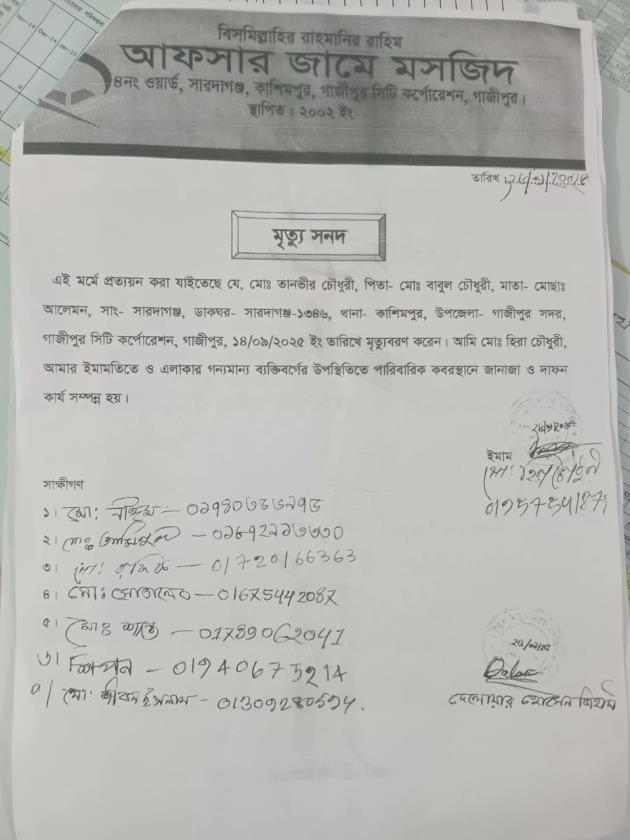 বিসমিল্লাহির রাহমানির রাহিম
আফসার জামে মসজিদ
৪নং ওয়ার্ড, সারদাগঞ্জ, কাশিমপুর, গাজীপুর সিটি কর্পোরেশন, গাজীপুর।
স্থাপিত : ২০০২ ইং
তারিখ :
মৃত্যু সনদ
এই মর্মে প্রত্যয়ন করা যাইতেছে যে, মোঃ তানভীর চৌধুরী, পিতা- মোঃ বাবুল চৌধুরী, মাতা- মোছাঃ
আলেমন, সাং- সারদাগঞ্জ, ডাকঘর- সারদাগঞ্জ-১৩৪৬, থানা- কাশিমপুর, উপজেলা- গাজীপুর সদর,
গাজীপুর সিটি কর্পোরেশন, গাজীপুর, ১৪/০৯/২০২৫ ইং তারিখে মৃত্যুবরণ করেন। আমি মোঃ হিরা চৌধুরী,
আমার ইমামতিতে ও এলাকার গন্যমান্য ব্যক্তিবর্গের উপস্থিতিতে পারিবারিক কবরস্থানে জানাজা ও দাফন
কার্য সম্পন্ন হয়।
ইমাম
সাক্ষীগণ
১। মোঃ
২। মোঃ
৩। মোঃ — 01720166363
৪। মোঃ — 01675442087
৫। মোঃ — 01789062041
৬। — 01940675214
৭। মোঃ - 01309280594.
দেলোয়ার হোসেন